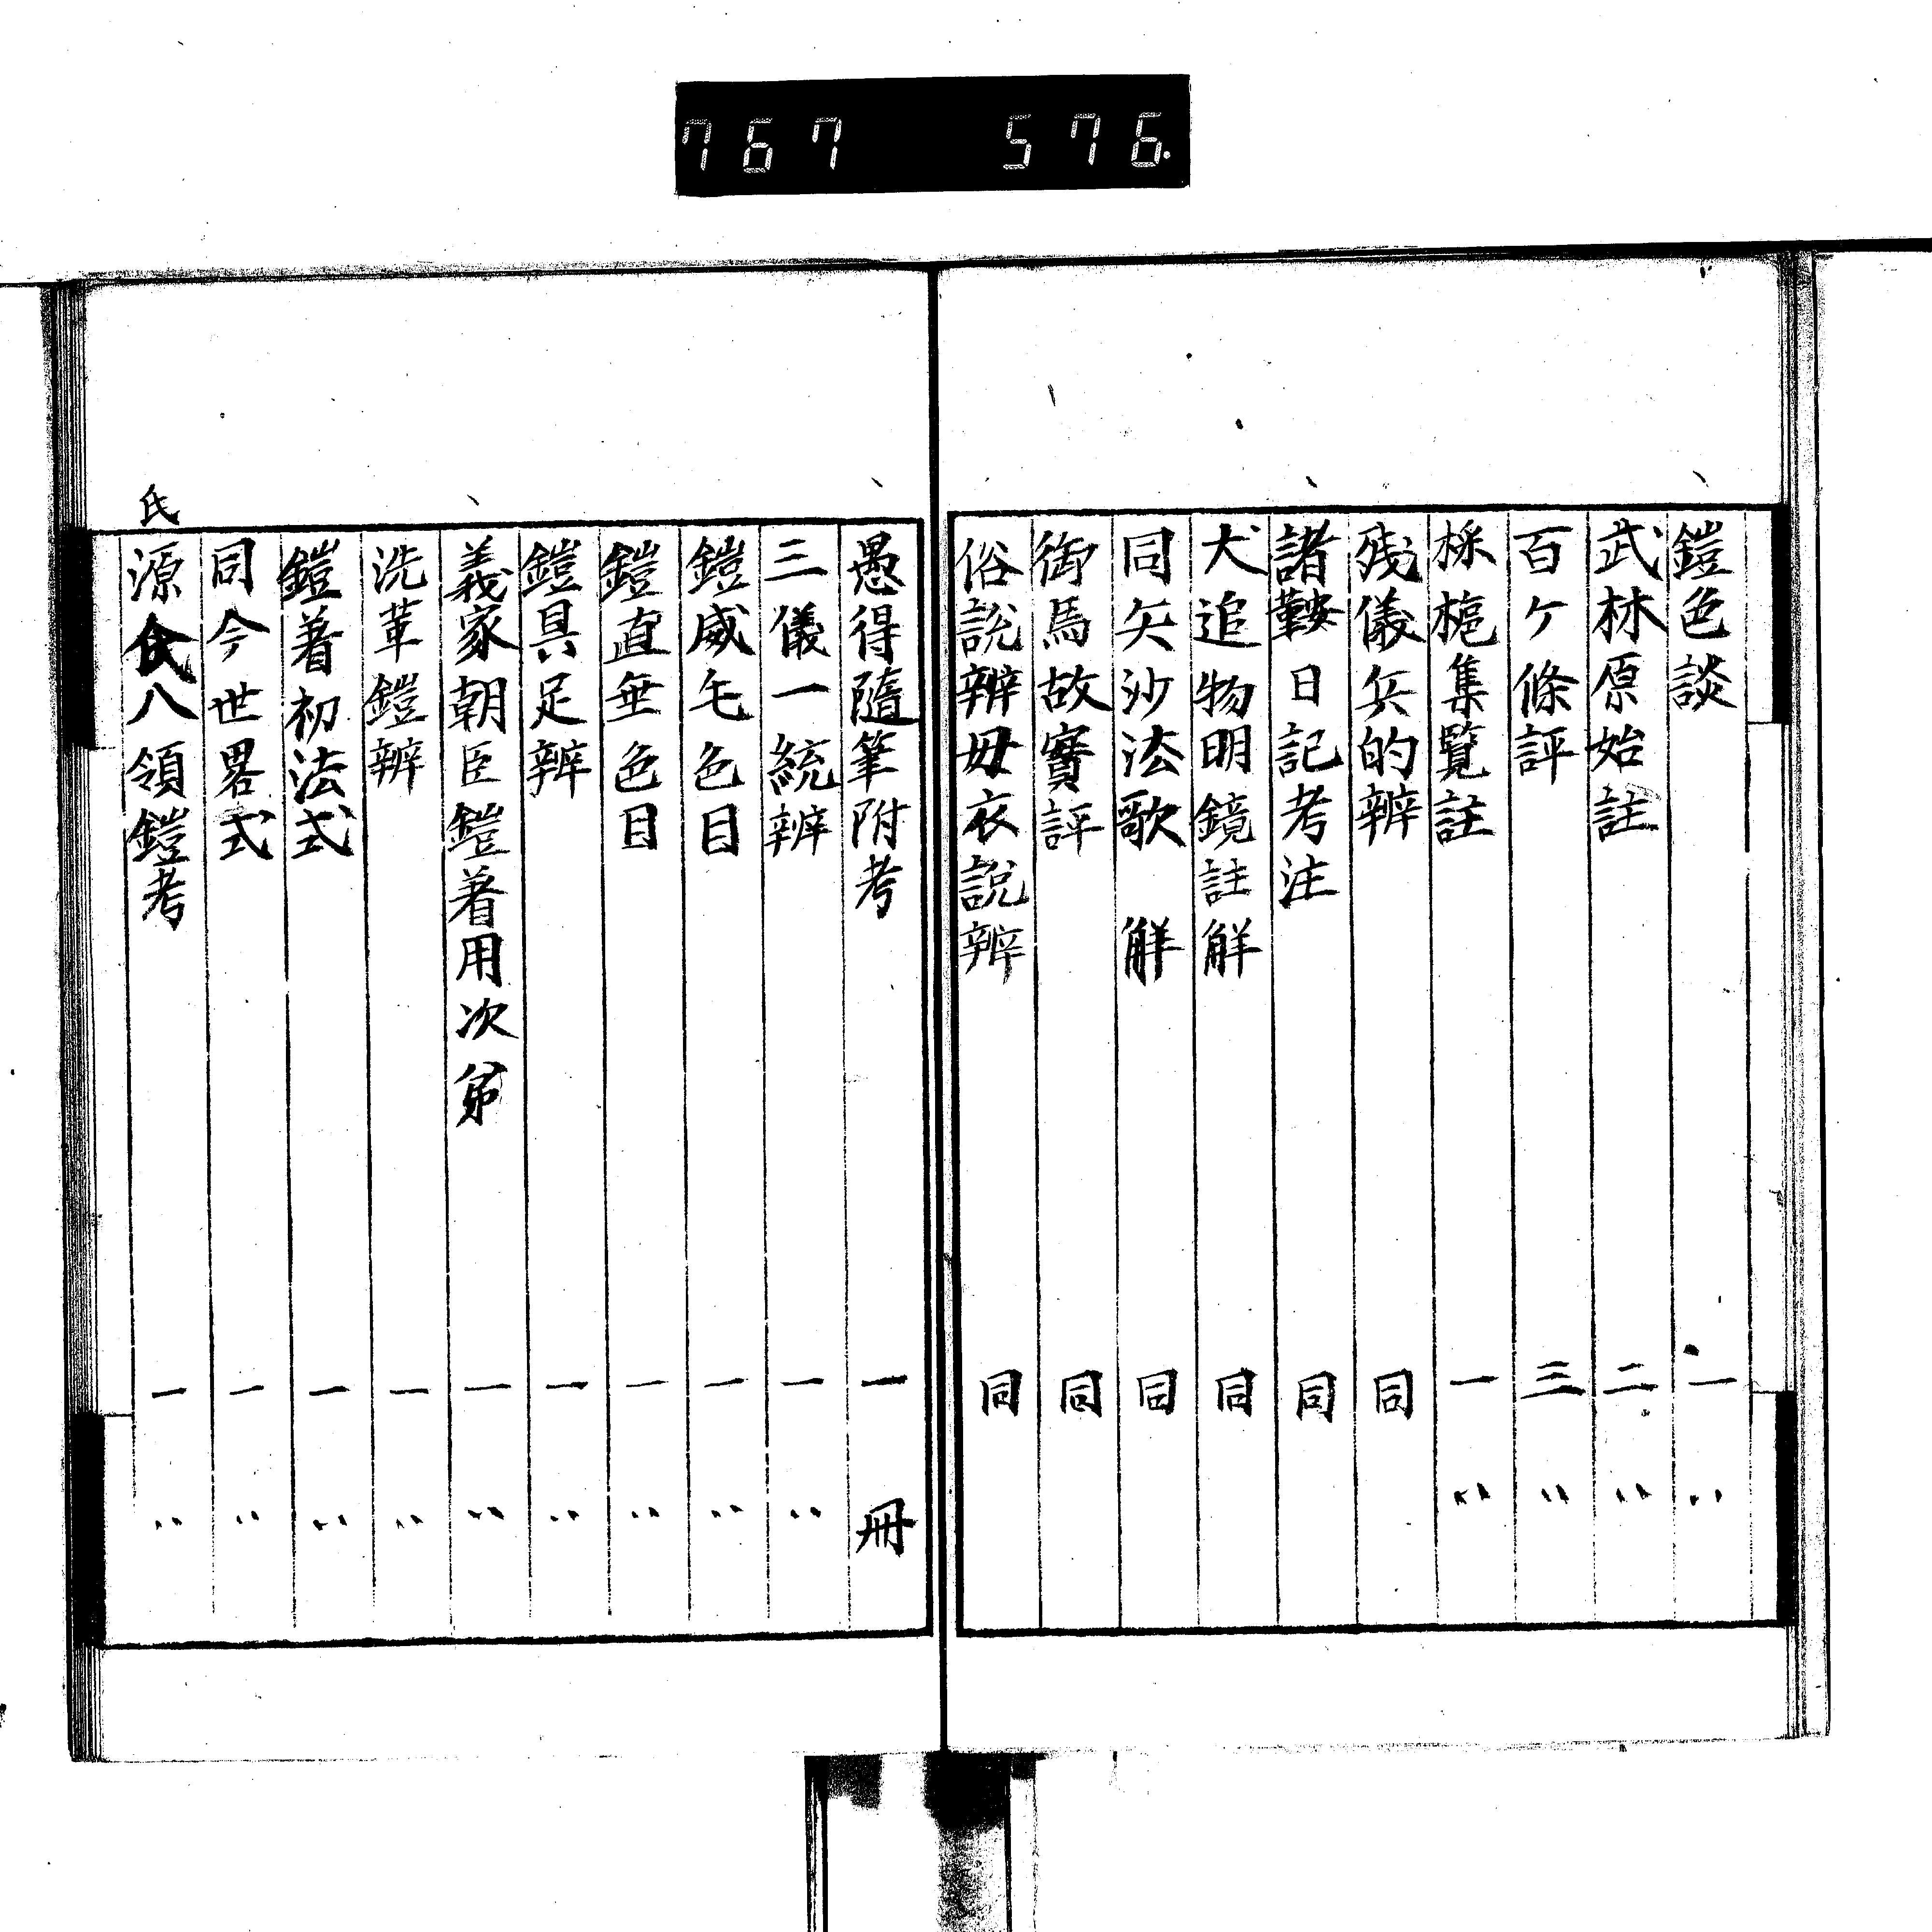 767 576.
鎧色談 一 〃
武林原始註 二 〃
百ケ條評 三 〃
採葩集覽註 一 〃
残儀兵的辨 同
諸鞍日記考注 同
犬追物明鏡註解 同
同矢沙法歌 解 同
御馬故實評 同
俗説辨母衣説辨 同
愚得隨筆附考 一 冊
三儀一統辨 一 〃
鎧威毛色目 一 〃
鎧直垂色目 一 〃
鎧具足辨 一 〃
義家朝臣鎧着用次第 一 〃
洗革鎧辨 一 〃
鎧着初法式 一 〃
同今世畧式 一 〃
氏
源氏八領鎧考 一 〃